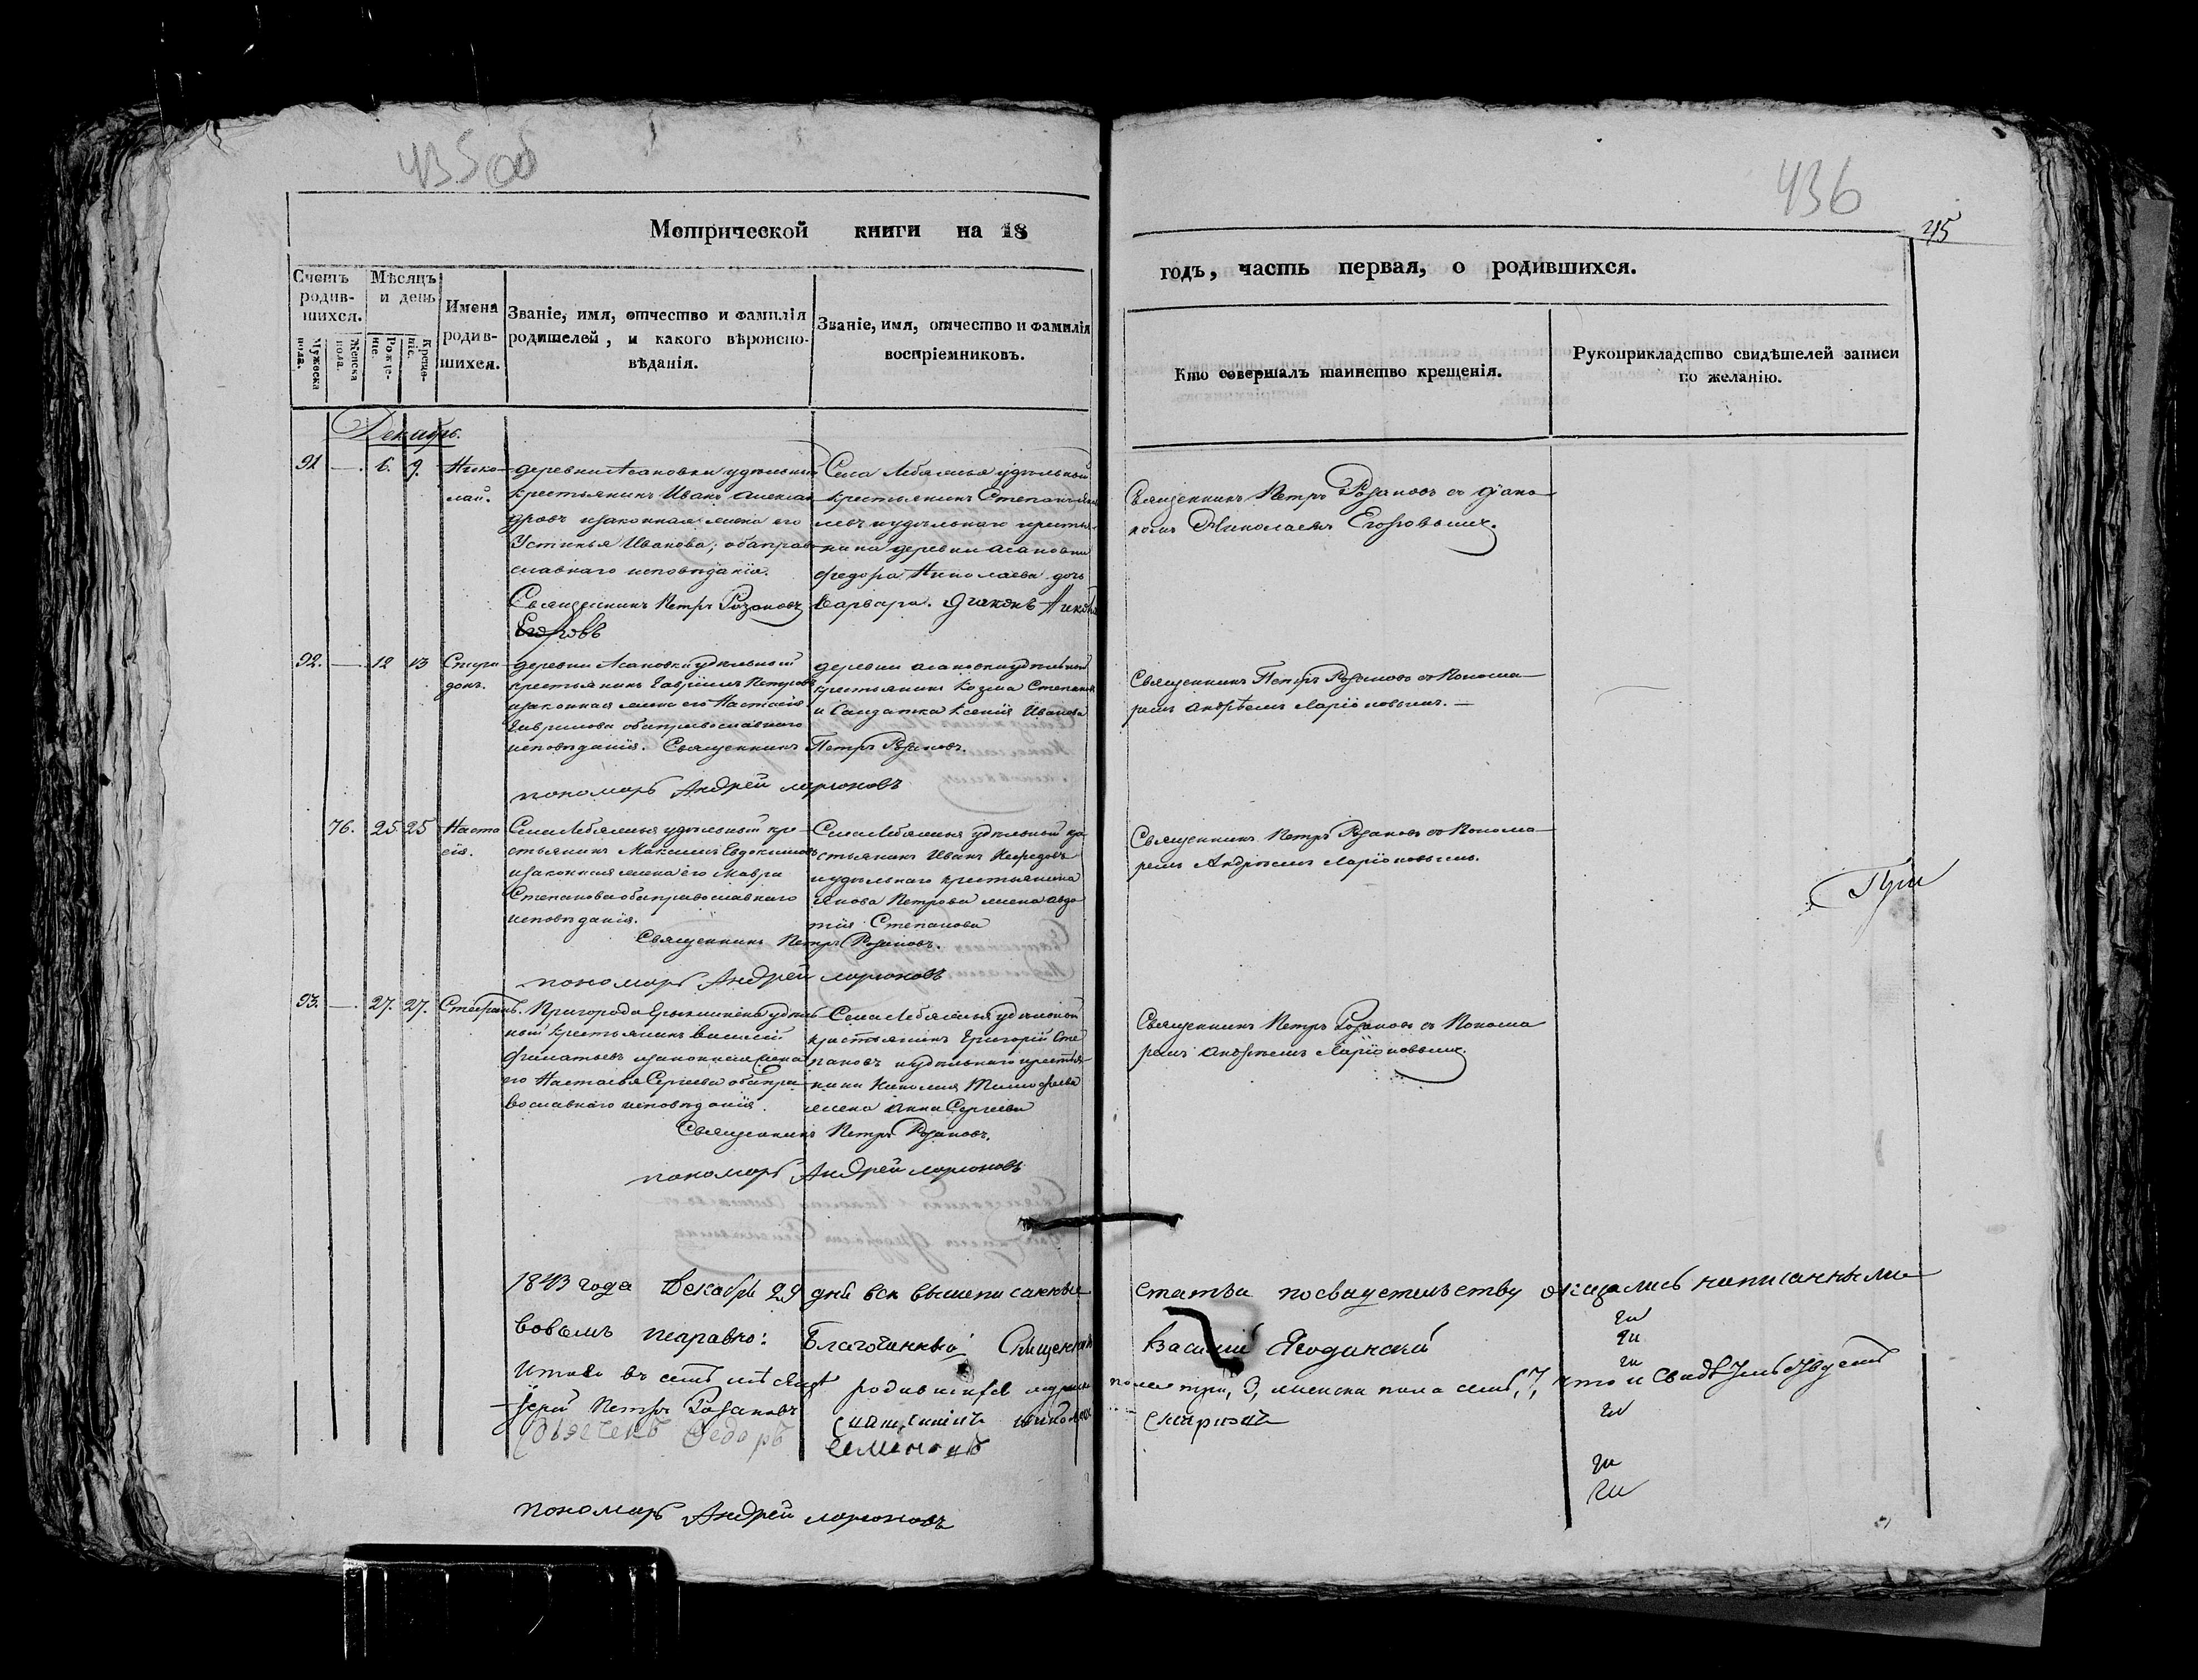 435 об
436
45
Метрической книги на 18
годъ, часть первая, о родившихся.
Счетъ родив-
шихся.
Мужеска пола.
Женска пола.
Мѣсяцъ и день
Рожде-
ніе.
Креще-
ніе.
Имена
родив-
шихся.
Званіе, имя, отчество и фамилія
родителей, и какого вѣроиспо-
вѣданія.
Званіе, имя, отчество и фамилія
воспріемниковъ.
Кто совершалъ таинство крещенія.
Рукоприкладство свидѣтелей записи
по желанію.
Декабрь.
91 — 6. 9. Нико-
лай.
деревни Асановки удѣльный
крестьянинъ Иванъ Алексан
дровъ изаконная жена его
Устинья Иванова; обаправо
славнаго исповѣданія.
Священникъ Петръ Розановъ
Егоровъ
Села Лебяжья удѣльный
крестьянинъ Степанъ
иудѣльнаго крестья-
нина деревни Асановки
Федора Николаева дочь
Варвара. Діаконъ
Священникъ Петръ Розановъ съ діако-
номъ Николаемъ Егоровымъ.
92. — 12 13 Спири
донъ.
деревни Асановки удѣльный
крестьянинъ Гавріилъ Петровъ
изаконная жена его Настасія
Гаврилова обаправославнаго
исповѣданія. Священникъ Петръ Розановъ.
пономарь Андрей ларионовъ
деревни Асановки удѣльный
крестьянинъ Козма Степановъ
и Салдатка Ксенія Иванова
Священникъ Петръ Розановъ съ Понома-
ремъ Андреемъ Ларіоновымъ. —
76. 25 25 Наста
сія.
Села Лебяжья удѣльный кре-
стьянинъ Максимъ Евдокимовъ
изаконная жена его Мавра
Степанова обаправославнаго
исповѣданія.
Священникъ Петръ Розановъ.
пономарь Андрей ларионовъ
Села Лебяжья удѣльный кре
стьянинъ Иванъ
иудѣльнаго крестьянина
Якова Петрова жена Авдо
тія Степанова
Священникъ Петръ Розановъ съ Понома-
ремъ Андреемъ Ларіоновымъ.
При
93. — 27. 27. Стефанъ.
Пригорода Ерыклинска удѣль
ный крестьянинъ Василій
Филатьевъ изаконная жена
его Настасья Сергѣева обапра
вославнаго исповѣданія.
Священникъ Петръ Розановъ.
пономарь Андрей ларионовъ
Села Лебяжья удѣльный
крестьянинъ Григорій Сте
пановъ иудѣльнаго крестья-
нина Тимофеева
жена Анна Сергѣева
Священникъ Петръ Розановъ съ Понома
ремъ Андреемъ Ларіоновымъ.
1843 года Декабря 29 дня всѣ вышеписанныя статьи посвидетельству оказались написанными
вовсемъ исправно: Благочинный Священникъ Василій Ягодинскій
Итого въ семъ мѣсяцѣ родившихся мужеска пола три, 3, женска пола семь, 7, что и свидѣтельствуемъ
Іерей Петръ Розановъ
Священникъ
Федоръ
Семеновъ
пономарь Андрей ларионовъ